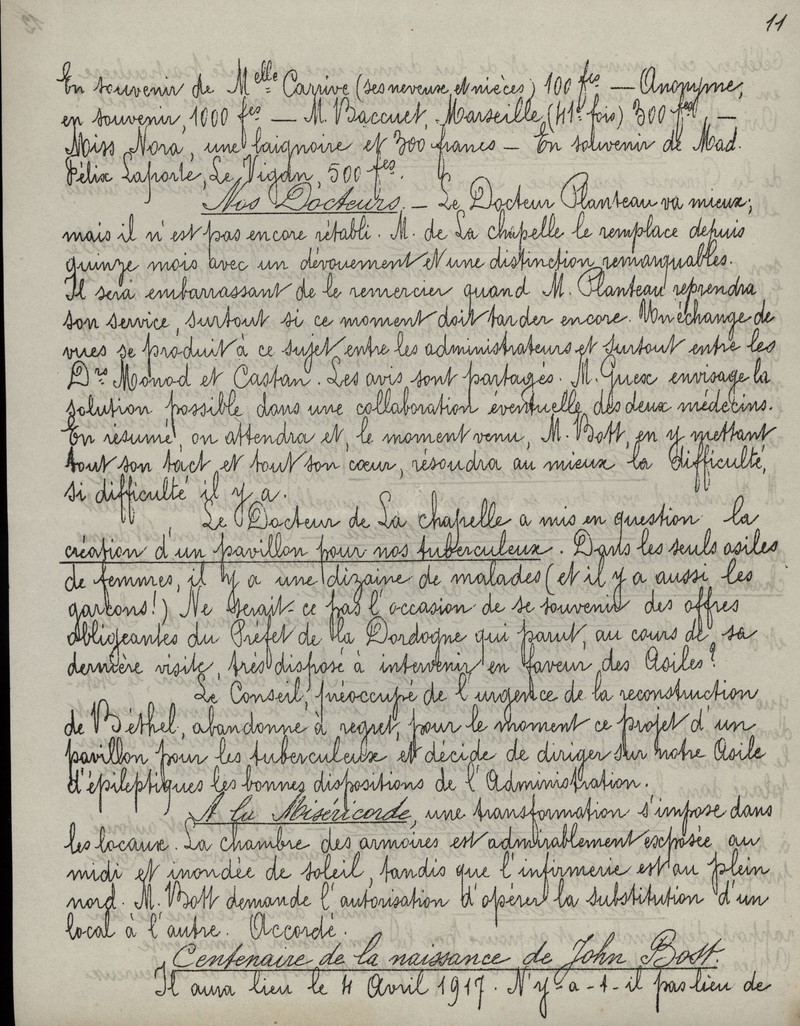 11
En souvenir de Melle Carrive (ses neveux et nièces) 100 frs — Anonyme,
en souvenir, 1000 frs — M. Baccuet, Marseille (41e fois) 300 frs, —
Miss Nora, une baignoire et 300 francs — En souvenir de Mad.
Félix Laporte, Le Vigan, 500 frs.
Nos Docteurs. — Le Docteur Planteau va mieux;
mais il n'est pas encore rétabli. M. de La chapelle le remplace depuis
quinze mois avec un dévouement et une distinction remarquables.
Il sera embarrassant de le remercier quand M. Planteau reprendra
son service, surtout si ce moment doit tarder encore. Un échange de
vues se produit à ce sujet entre les administrateurs et surtout entre les
Drs Monod et Castan. Les avis sont partagés. M. Guex envisage la
solution possible dans une collaboration éventuelle des deux médecins.
En résumé, on attendra et, le moment venu, M. Bott, en y mettant
tout son tact et tout son cœur, résoudra au mieux la difficulté,
si difficulté il y a.
Le Docteur de La chapelle a mis en question la
création d'un pavillon pour nos tuberculeux. Dans les seuls asiles
de femmes, il y a une dizaine de malades (et il y a aussi les
garçons!) Ne serait-ce pas l'occasion de se souvenir des offres
obligeantes du Préfet de la Dordogne qui parut, au cours de sa
dernière visite, très disposé à intervenir en faveur des Asiles?
Le Conseil, préoccupé de l'urgence de la reconstruction
de Béthel, abandonne à regret, pour le moment ce projet d'un
pavillon pour les tuberculeux et décide de diriger sur notre Asile
d'épileptiques les bonnes dispositions de l'Administration.
A la Miséricorde, une transformation s'impose dans
les locaux. La chambre des armoires est admirablement exposée au
midi et inondée de soleil, tandis que l'infirmerie est au plein
nord. M. Bott demande l'autorisation d'opérer la substitution d'un
local à l'autre. Accordé.
Centenaire de la naissance de John Bost.
Il aura lieu le 4 Avril 1917. N'y-a-t-il pas lieu de